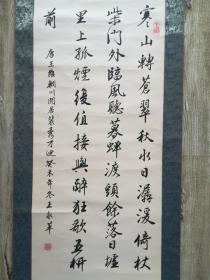 寒山轉蒼翠秋水日潺湲倚杖
柴門外臨風聽暮蟬渡頭餘落日墟
里上孤煙復值接輿醉狂歌五柳
前
唐王維輞川閒居裴秀才迪癸未年冬王